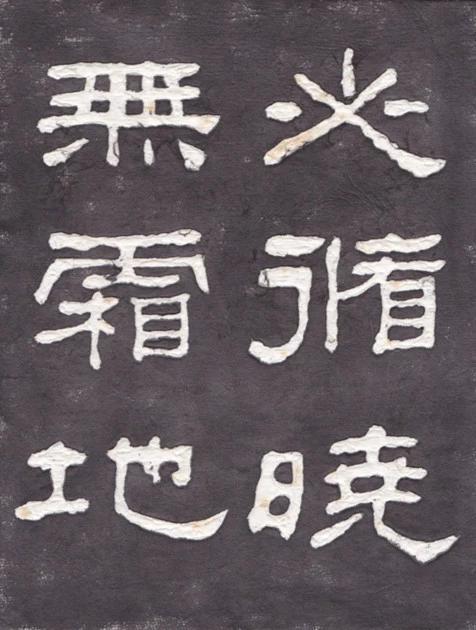 必曉
無霜地